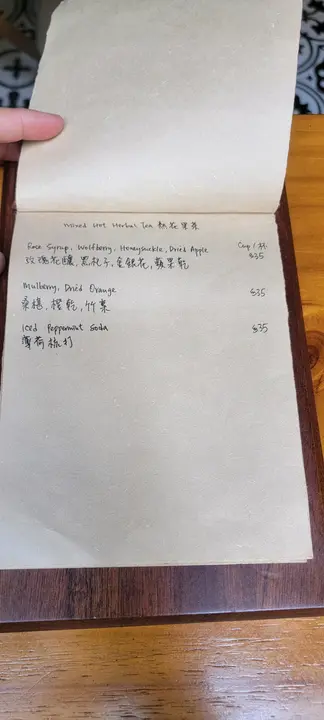 Mixed Hot Herbal Tea 熱花果茶
Rose Syrup, Wolfberry, Honeysuckle, Dried Apple Cup / 杯
玫瑰花釀, 黑杞子, 金銀花, 蘋果乾 $35
Mulberry, Dried Orange $35
桑椹, 橙乾, 竹蔗
Iced Peppermint Soda $35
薄荷梳打